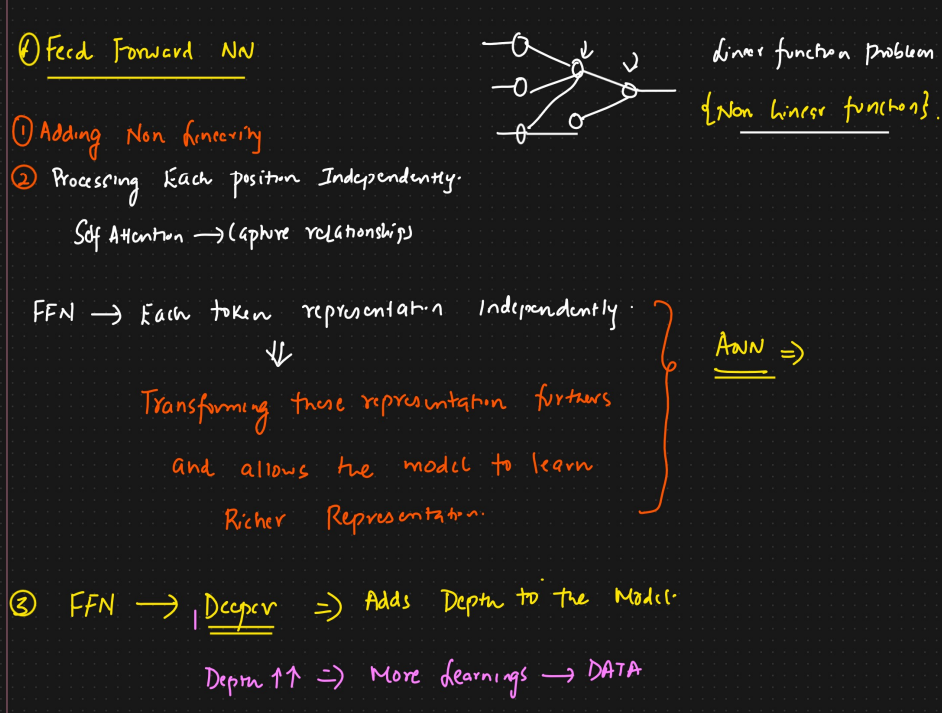 ① Feed Forward NN
Linear function problem
{Non Linear function}.
① Adding Non Linearity
② Processing Each position Independently.
Self Attention → Capture relationships
FFN → Each token representation Independently.
⇓
ANN ⇒
Transforming these representation furthers
and allows the model to learn
Richer Representation.
③ FFN → Deeper ⇒ Adds Depth to the Model.
Depth ↑↑ ⇒ More Learnings → DATA